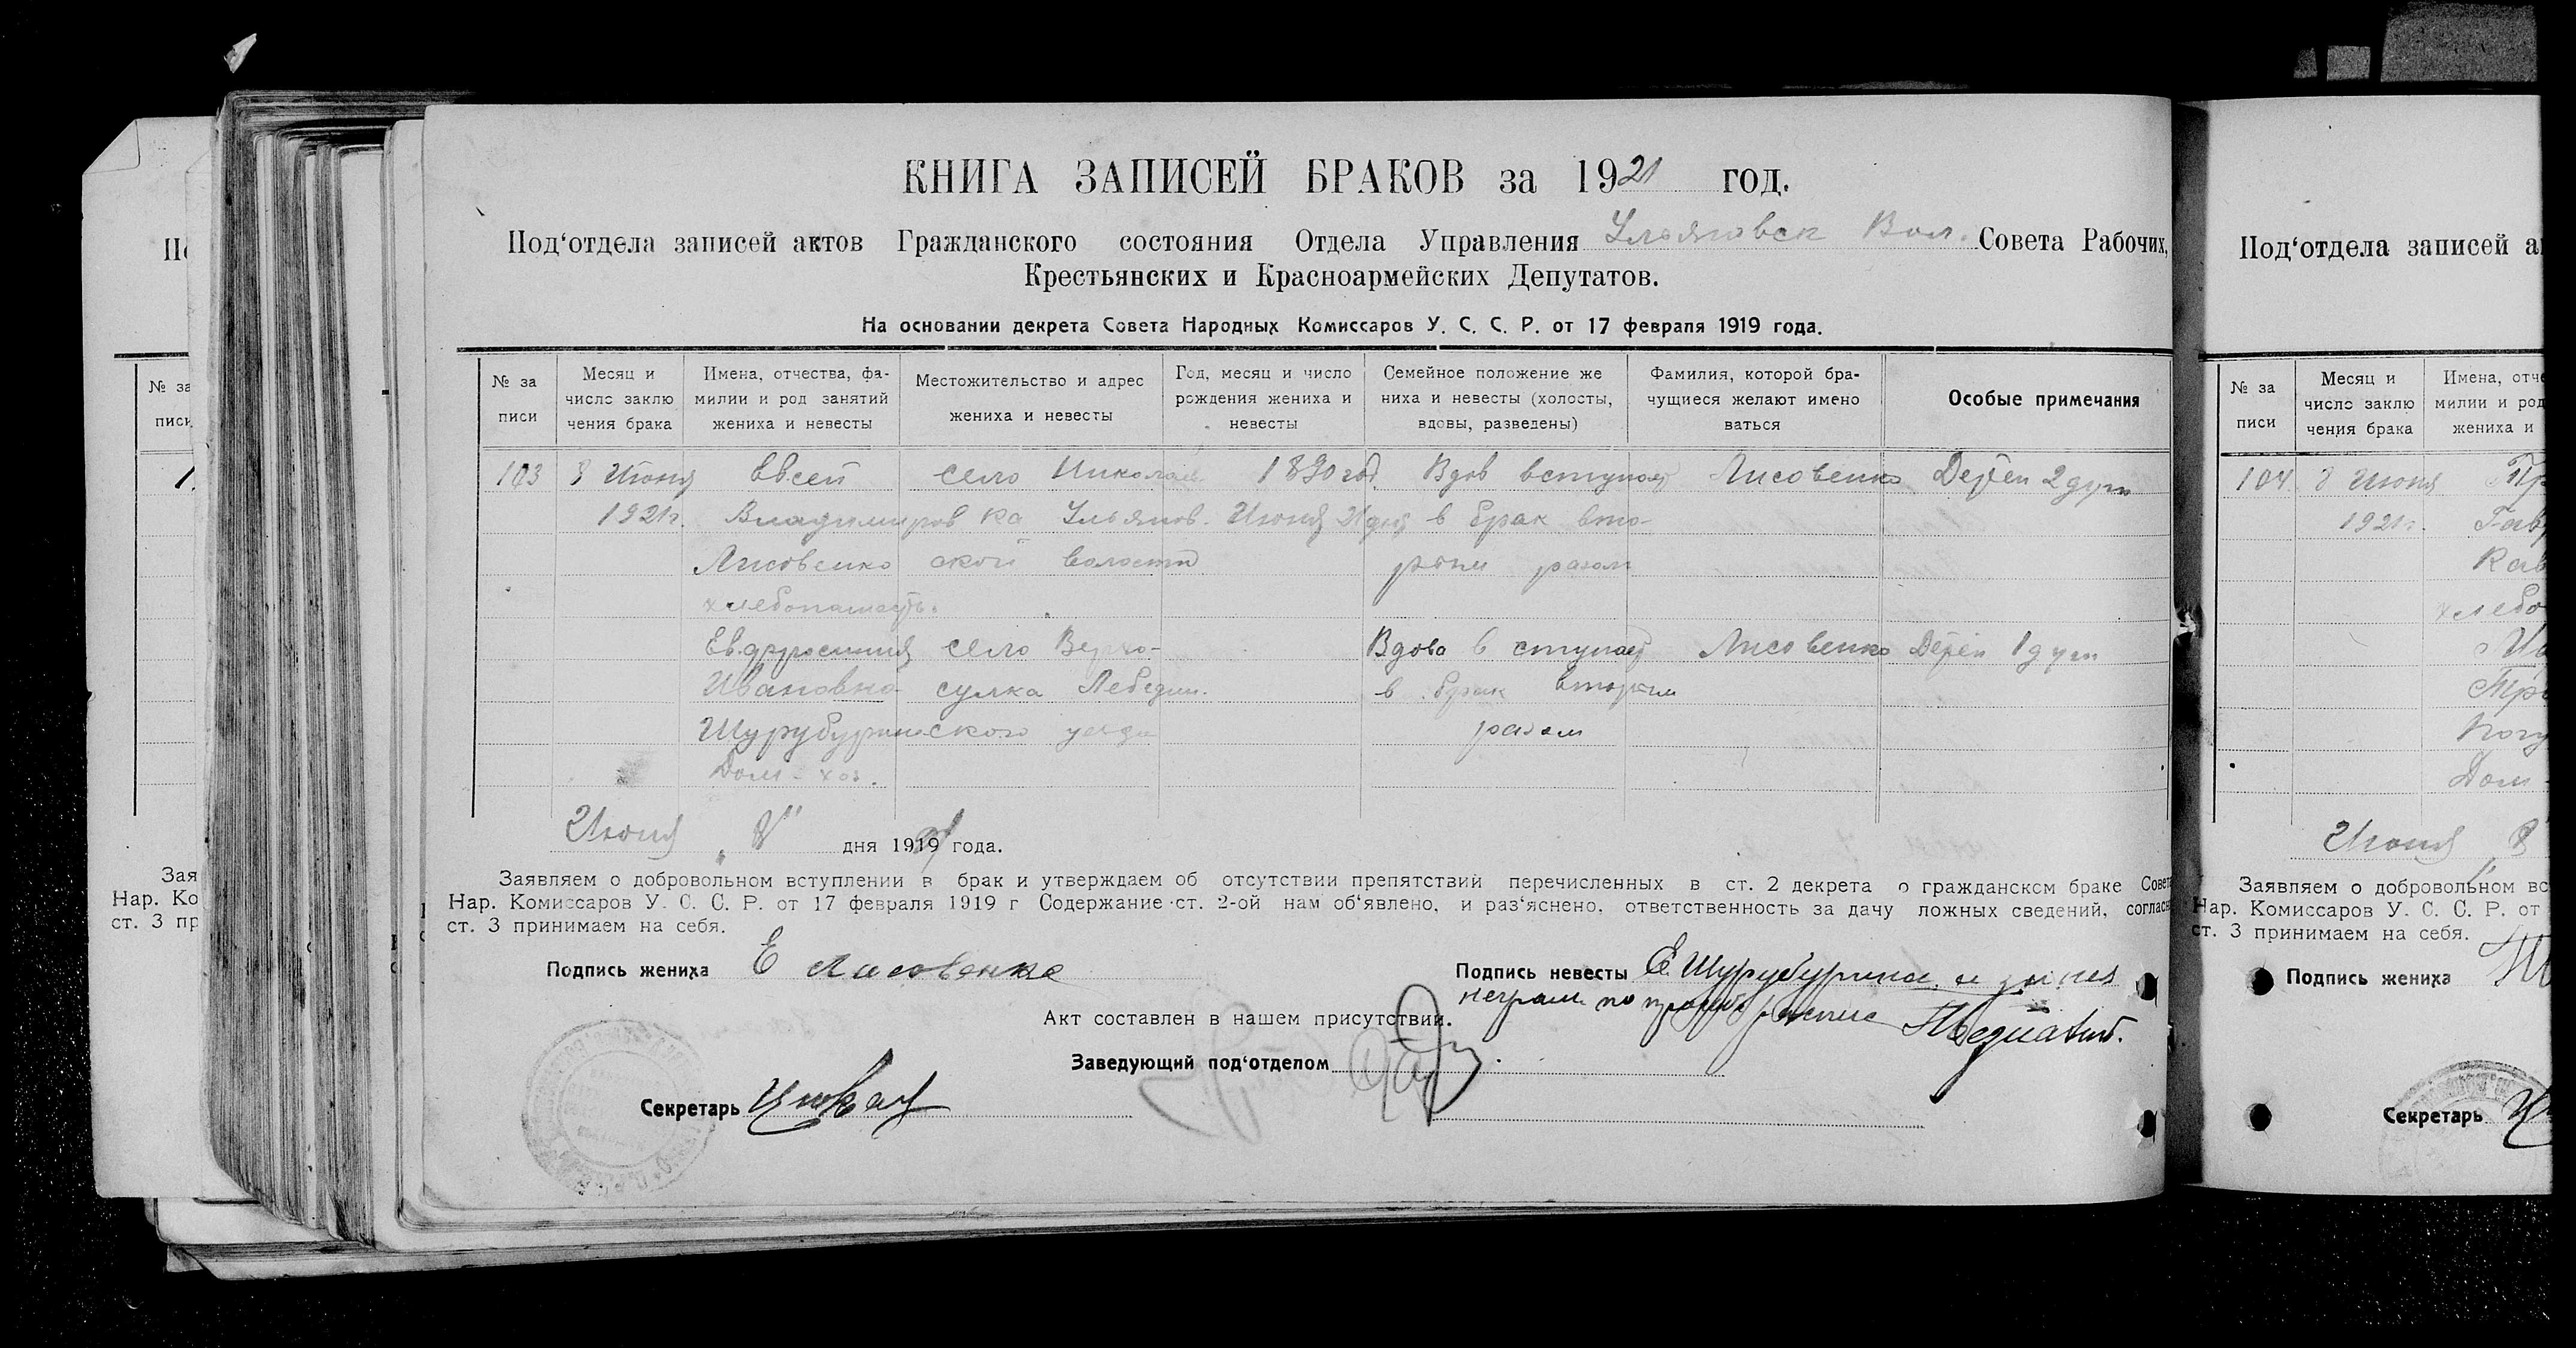 КНИГА ЗАПИСЕЙ БРАКОВ за 1921 год.
Под‘отдела записей актов Гражданского состояния Отдела Управления Ульяновск Вол. Совета Рабочих,
Крестьянских и Красноармейских Депутатов.
На основании декрета Совета Народных Комиссаров У. С. С. Р. от 17 февраля 1919 года.
№ за
писи
Месяц и
число заклю
чения брака
Имена, отчества, фа-
милии и род занятий
жениха и невесты
Местожительство и адрес
жениха и невесты
Год, месяц и число
рождения жениха и
невесты
Семейное положение же
ниха и невесты (холосты,
вдовы, разведены)
Фамилия, которой бра-
чущиеся желают имено
ваться
Особые примечания
103 8 Июня Евсей село Николаев- 1890 год Вдов вступает Лисовенко Детей 2 душ
1921г. Владимиров ка Ульянов. Июня 21 дня в брак вто-
Лисовенко ской волости рым разом
хлебопашець.
Евфросиния село Верхо- Вдова вступает Лисовенко Детей 1 душ
Ивановна сулка Лебедин. в брак вторым
Шурубурина ского уезда разом
Дом-хоз.
Июня „8" дня 1921 года.
Заявляем о добровольном вступлении в брак и утверждаем об отсутствии препятствий перечисленных в ст. 2 декрета о гражданском браке Совета
Нар. Комиссаров У. С. С. Р. от 17 февраля 1919 г Содержание ст. 2-ой нам об‘явлено, и раз‘яснено, ответственность за дачу ложных сведений, согласн
ст. 3 принимаем на себя.
Подпись жениха Е Лисовенко
Подпись невесты Е Шурубурина а за нея
неграм. по просьбе
Акт составлен в нашем присутствии.
Заведующий под‘отделом
Секретарь
Под‘отдела записей а
№ за
писи
Месяц и
число заклю
чения брака
Имена, отче
милии и род
жениха и
104 8 Июня
1921г.
хлебо
Дом
Июня 8
Заявляем о добровольном вс
Нар. Комиссаров У. С. С. Р. от
ст. 3 принимаем на себя.
Подпись жениха
Секретарь
№ за
писи
Зая
Нар. Ко
ст. 3 пр